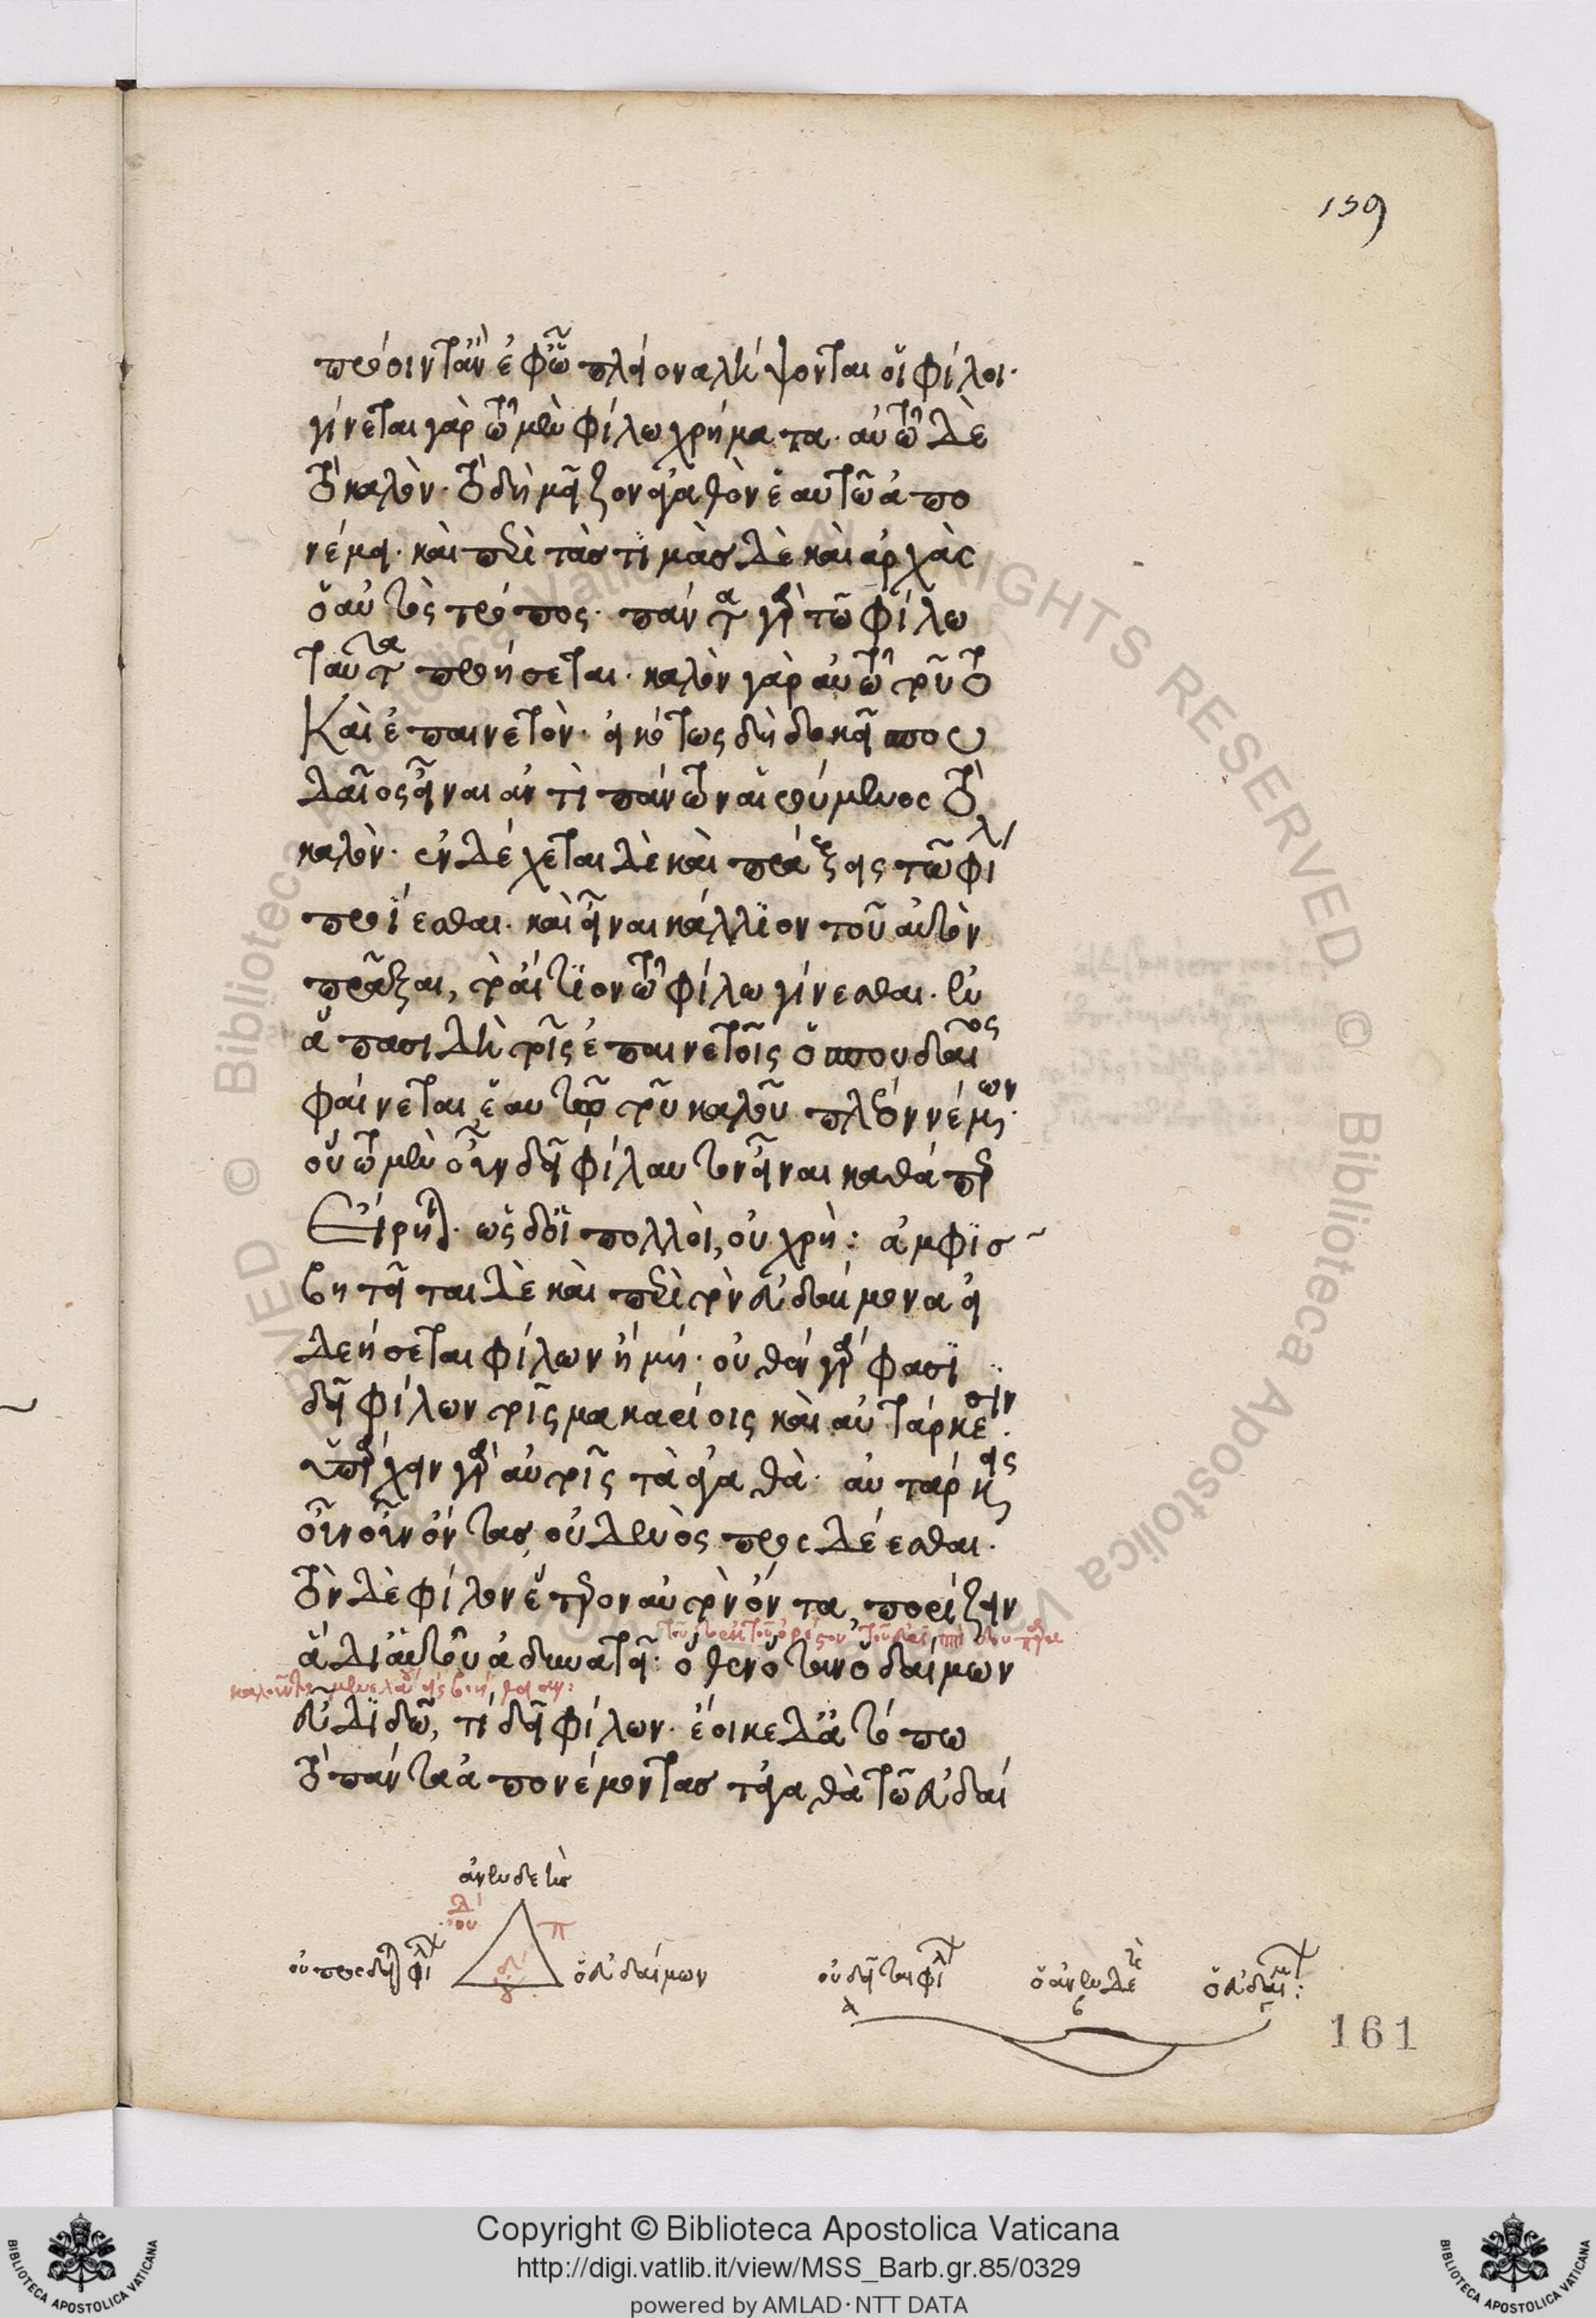 159
πρόοιντ' ἂν ἐφ' ᾧ πλείονα λήψονται οἱ φίλοι·
γίνεται γὰρ τῷ μὲν φίλῳ χρήματα· αὐτῷ δὲ
τὸ καλὸν· τὸ δὴ μεῖζον ἀγαθὸν ἑαυτῷ ἀπο
νέμει· καὶ περὶ τὰς τιμὰς δὲ καὶ ἀρχὰς
ὁ αὐτὸς τρόπος· πάντα γὰρ τῷ φίλῳ
ταῦτα προήσεται· καλὸν γὰρ αὐτῷ τοῦτο
Καὶ ἐπαινετὸν· εἰκότως δὴ δοκεῖ σπου
δαῖος εἶναι ἀντὶ πάντων αἱρούμενος τὸ
καλὸν· ἐνδέχεται δὲ καὶ πράξεις τῷ φίλῳ
προΐεσθαι· καὶ εἶναι κάλλιον τοῦ αὐτὸν
πρᾶξαι, τὸ αἴτιον τῷ φίλῳ γίνεσθαι· ἐν
ἅπασι δὴ τοῖς ἐπαινετοῖς ὁ σπουδαῖος
φαίνεται ἑαυτῷ τοῦ καλοῦ πλέον νέμων·
οὕτω μὲν οὖν δεῖ φίλαυτον εἶναι καθάπερ
Εἴρηται· ὡς δ' οἱ πολλοὶ, οὐ χρή: ἀμφισ
βητεῖται δὲ καὶ περὶ τὸν εὐδαίμονα εἰ
δεήσεται φίλων ἢ μή· οὐθὲν γάρ φασι
δεῖ φίλων τοῖς μακαρίοις καὶ αὐτάρκεσιν·
ὑπάρχειν γὰρ αὐτοῖς τὰ ἀγαθὰ· αὐτάρκεις
οὖν ὄντας οὐδενὸς προσδέεσθαι·
τὸν δὲ φίλον ἕτερον αὐτὸν ὄντα, πορίζειν
ἃ δι' αὑτοῦ ἀδυνατεῖ· ὅθεν ὅταν ὁ δαίμων
εὖ διδῷ, τί δεῖ φίλων· ἔοικε δ' ἀτόπῳ
τὸ πάντα ἀπονέμοντας τἀγαθὰ τῷ εὐδαί
ἀνενδεὴς
οὐ προσδεῖται φίλων
ὁ εὐδαίμων
οὐ δεῖται φίλων
ὁ ἀνενδεὴς
ὁ εὐδαίμων:
161
Copyright © Biblioteca Apostolica Vaticana
http://digi.vatlib.it/view/MSS_Barb.gr.85/0329
powered by AMLAD·NTT DATA